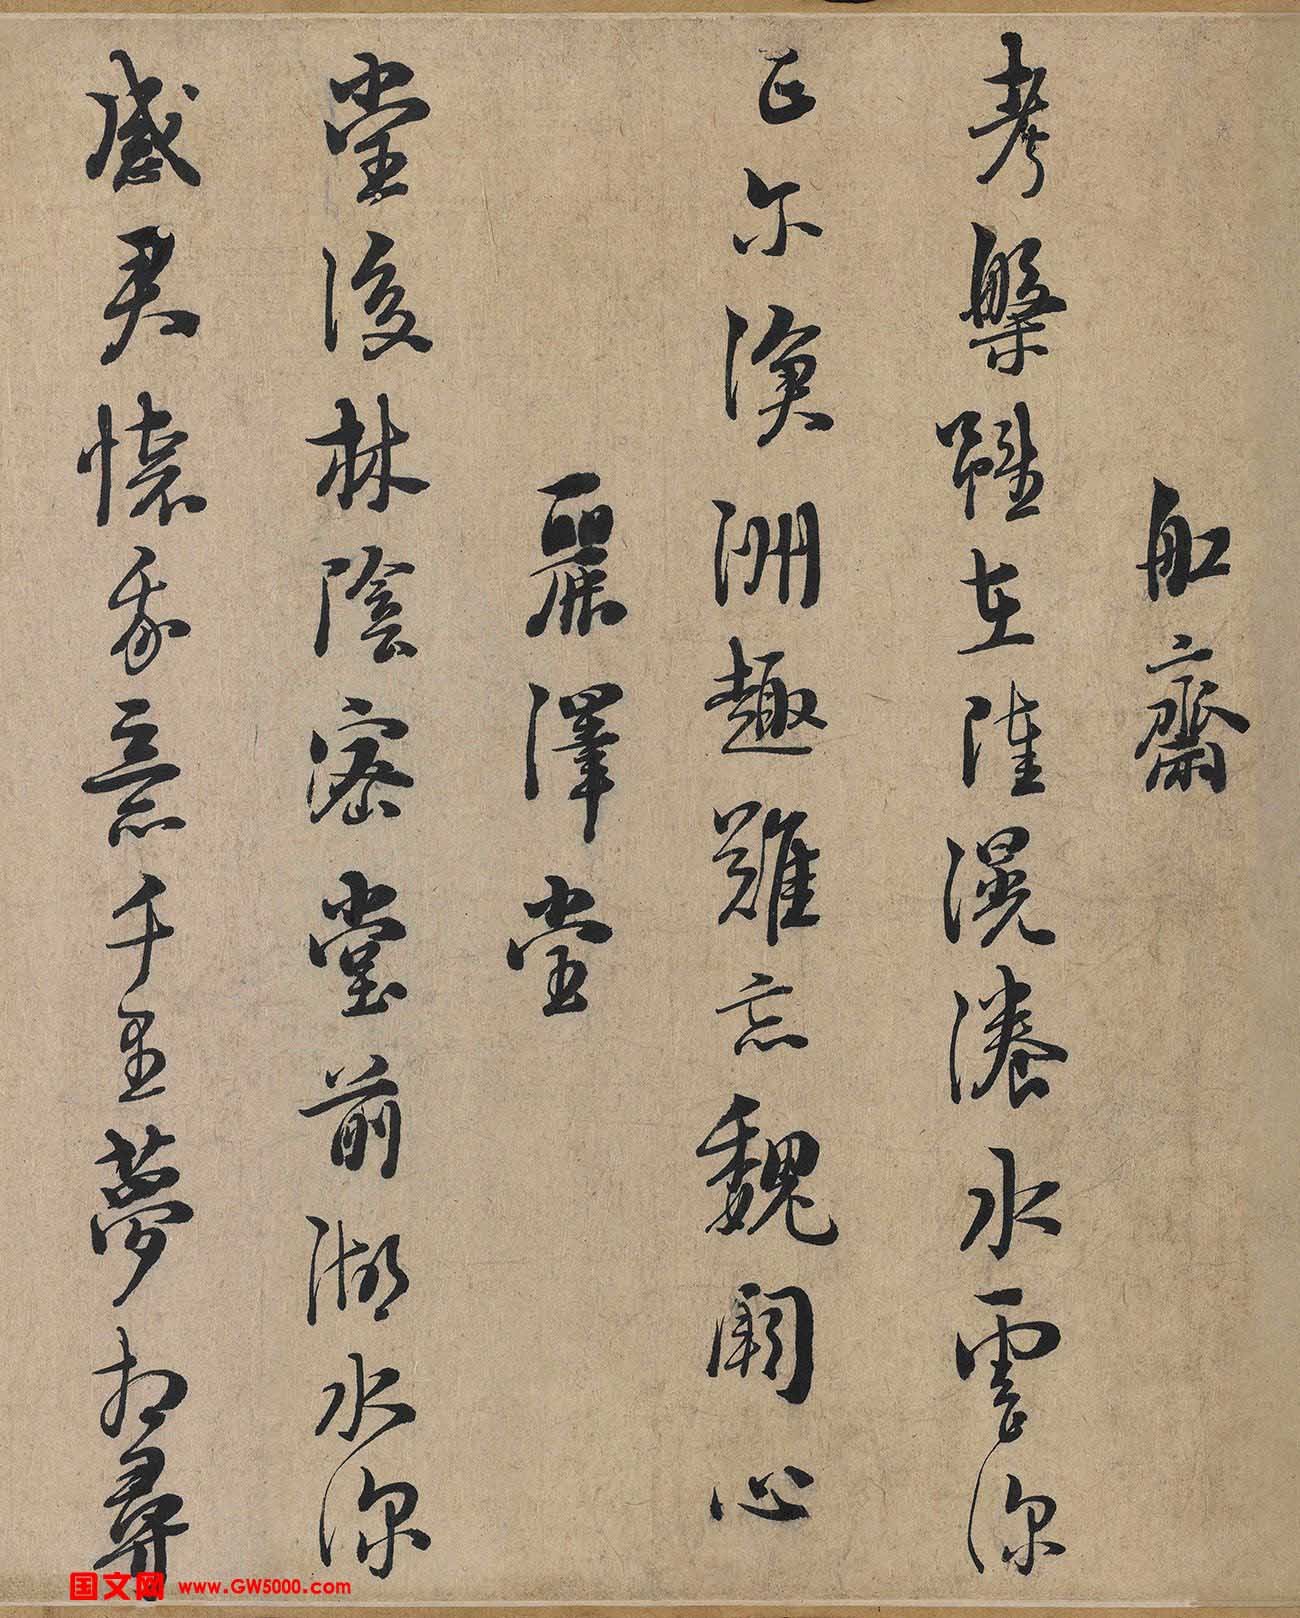 舡齋
考槃雖在陸滉瀁水雲深
正尔滄洲趣難忘魏闕心
麗澤堂
堂後林陰密堂前湖水深
感君懷我意千里夢相尋
国文网 www.GW5000.com